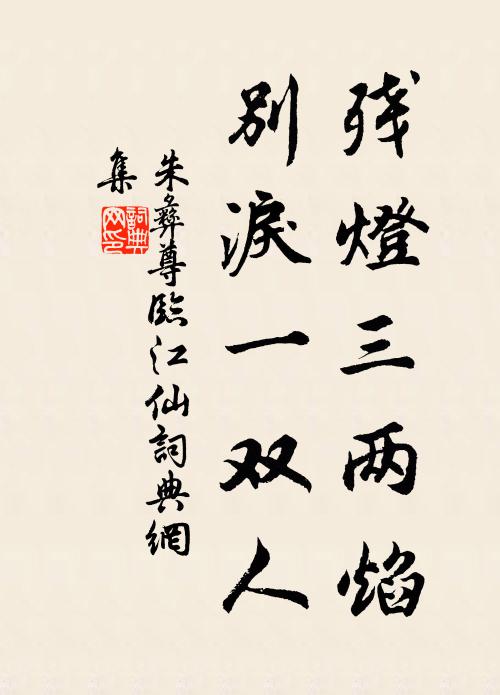 残燈三两焰
別淚一双人
朱彝尊臨江仙詞典網
集
詞典网印